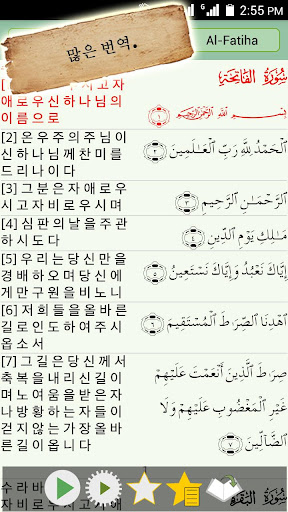 G 2:55 PM
많은 번역.
Al-Fatiha
سُورَةُ الْفَاتِحَةِ
시고 자
애로우신 하나님의
이름으로
بِسْمِ اللَّهِ الرَّحْمَٰنِ الرَّحِيمِ ١
[2] 온 우주의 주님이
신 하나님께 찬미를
드리나이다
الْحَمْدُ لِلَّهِ رَبِّ الْعَالَمِينَ ٢
[3] 그분은 자애로우
시고 자비로우시며
الرَّحْمَٰنِ الرَّحِيمِ ٣
[4] 심판의 날을 주관
하시도다
مَالِكِ يَوْمِ الدِّينِ ٤
[5] 우리는 당신만을
경배하오며 당신에
게만 구원을 비노니
إِيَّاكَ نَعْبُدُ وَإِيَّاكَ نَسْتَعِينُ ٥
[6] 저희들을 올바른
길로 인도하여 주시
옵소서
اهْدِنَا الصِّرَاطَ الْمُسْتَقِيمَ ٦
[7] 그 길은 당신께서
축복을 내리신 길이
며 노여움을 받은 자
나 방황하는 자들이
걷지않는 가장 올바
른 길이옵니다
صِرَاطَ الَّذِينَ أَنْعَمْتَ عَلَيْهِمْ
غَيْرِ الْمَغْضُوبِ عَلَيْهِمْ وَلَا
الضَّالِّينَ ٧
수라 바
자비로우시고 자
سُورَةُ الْبَقَرَةِ